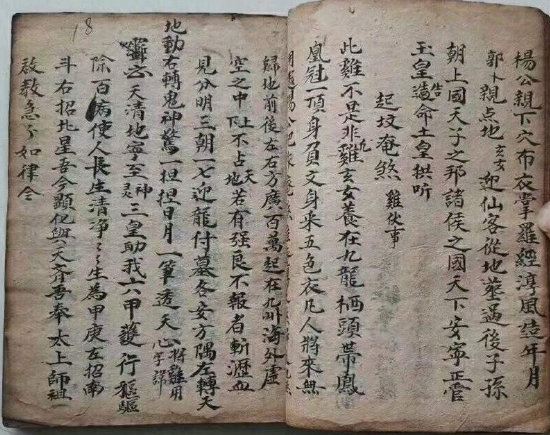 楊公親下穴布衣掌羅經淳風造年月
郭卜親点地玄女迎仙客從地塟過後子孫
朝上國天子之邦諸侯之國天下安寕正管
玉皇告造命土皇拱听
起坟奄煞 雞伏事
此雞不是非雞九玄女養在九龍栖頭帶鳳
凰冠一頂身負文身采五色衣凡人將來無
18
歸地前後左右方廣百萬起在九州海外虛
空之中上不占天下不占地若有强良不報者斬瀝血
見分明三朝一七迎龍付墓各安方隅左轉天
地動右轉鬼神驚一担担日月一筆透天心將雞用字諱
天清地寧至神至灵三皇助我六甲發行驅
除百病使人長生清淨〻生為甲庚左招南
斗右招北星吾今顯化與天齐吾奉太上師祖
啟教急〻如律令